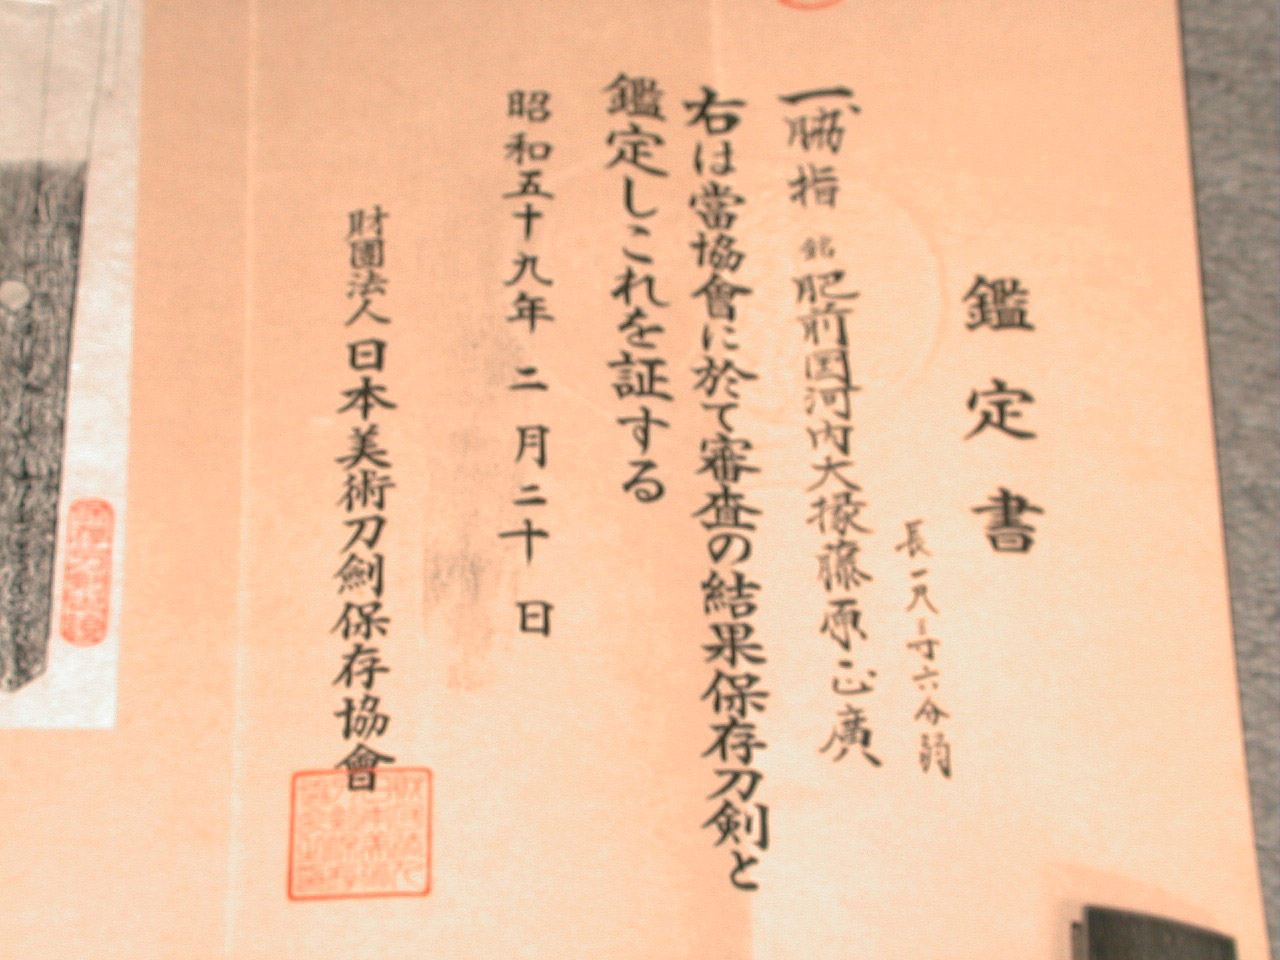 鑑定書
長一尺二寸六分弱
一、脇指 銘 肥前国河内大掾藤原正廣
右は當協會に於て審査の結果保存刀剣と
鑑定しこれを証する
昭和五十九年二月二十日
財團法人日本美術刀劍保存協會